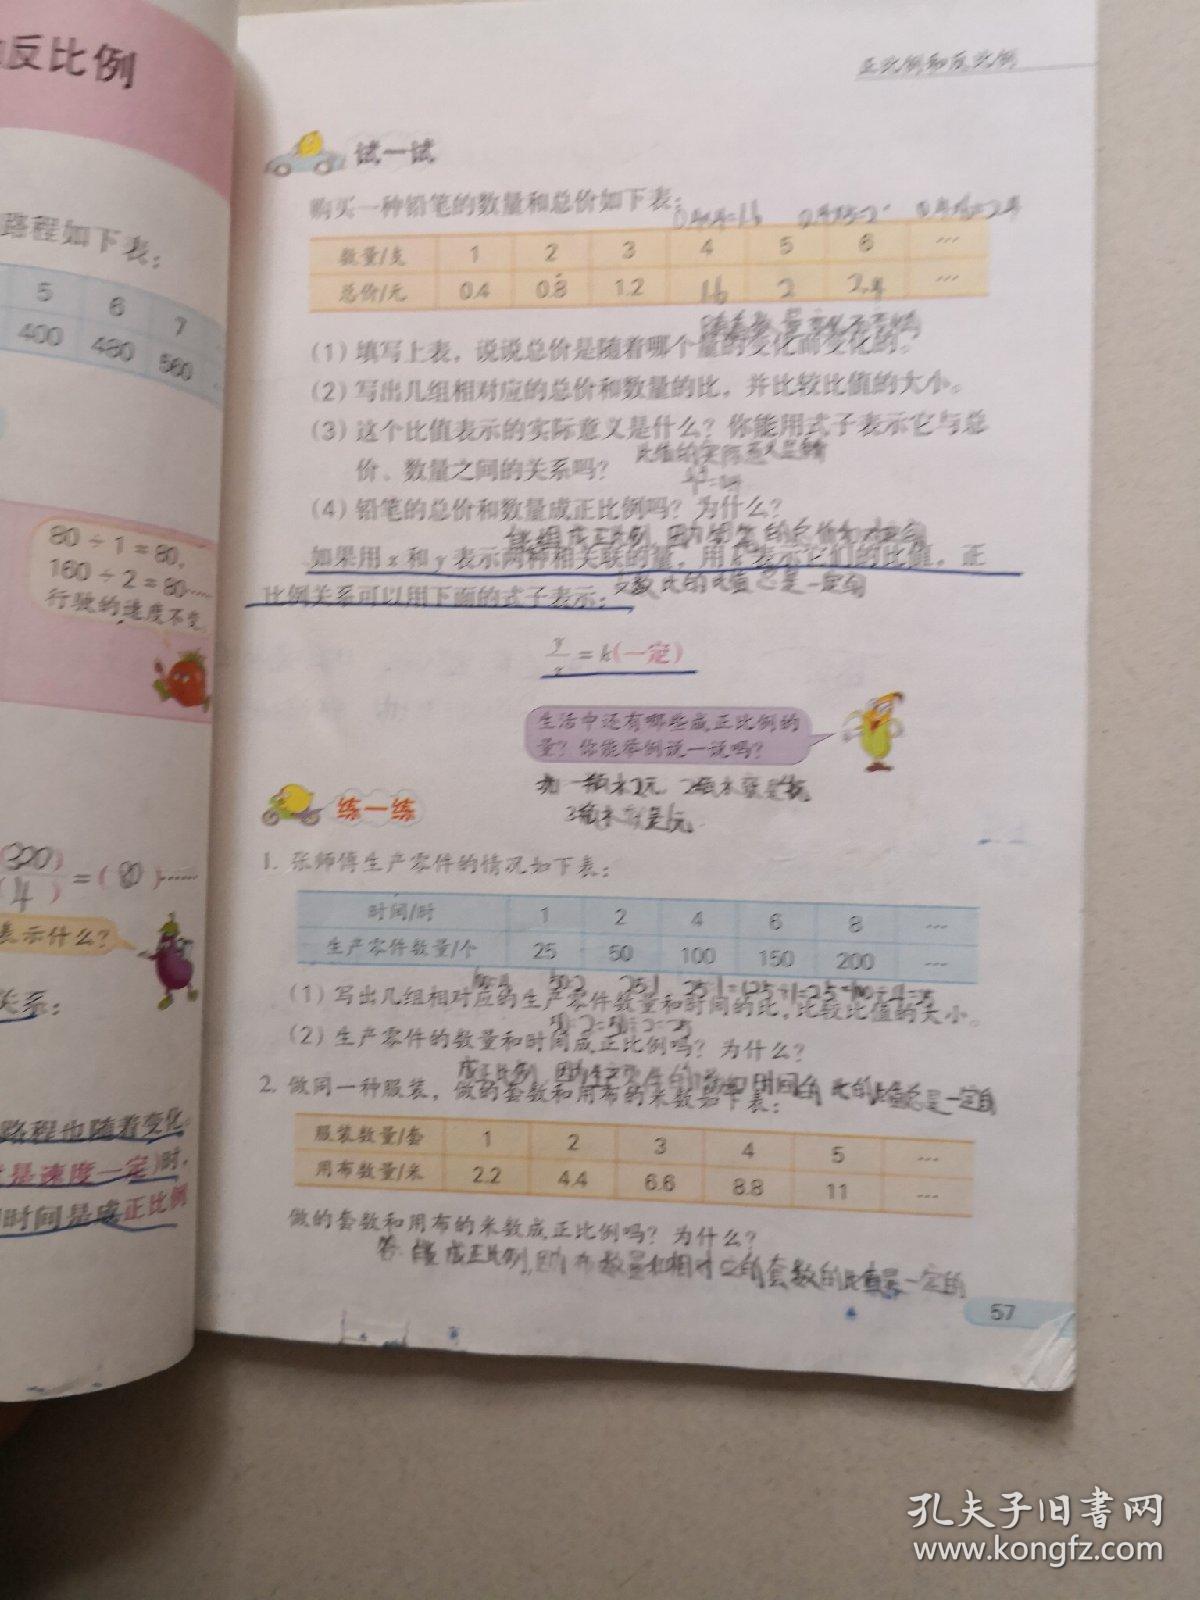 反比例
路程如下表：
5 6 7
400 480 560
80÷1=80，
160÷2=80……
行驶的速度不变。
(320)
(4)
=(80)……
表示什么？
关系：
路程也随着变化。
是速度一定)时，
时间是成正比例
正比例和反比例
试一试
购买一种铅笔的数量和总价如下表：
0.4×4=1.6 0.4×5=2 0.4×6=2.4
数量/支 1 2 3 4 5 6 …
总价/元 0.4 0.8 1.2 1.6 2 2.4 …
(1) 填写上表，说说总价是随着哪个量的变化而变化的。
(2) 写出几组相对应的总价和数量的比，并比较比值的大小。
(3) 这个比值表示的实际意义是什么？你能用式子表示它与总
价、数量之间的关系吗？
(4) 铅笔的总价和数量成正比例吗？为什么？
如果用 x 和 y 表示两种相关联的量，用 k 表示它们的比值，正
比例关系可以用下面的式子表示：
y
x
=k(一定)
生活中还有哪些成正比例的
量？你能举例说一说吗？
练一练
1. 张师傅生产零件的情况如下表：
时间/时 1 2 4 6 8 …
生产零件数量/个 25 50 100 150 200 …
(1) 写出几组相对应的生产零件数量和时间的比，比较比值的大小。
(2) 生产零件的数量和时间成正比例吗？为什么？
2. 做同一种服装，做的套数和用布的米数如下表：
服装数量/套 1 2 3 4 5 …
用布数量/米 2.2 4.4 6.6 8.8 11 …
做的套数和用布的米数成正比例吗？为什么？
57
孔夫子旧书网
www.kongfz.com